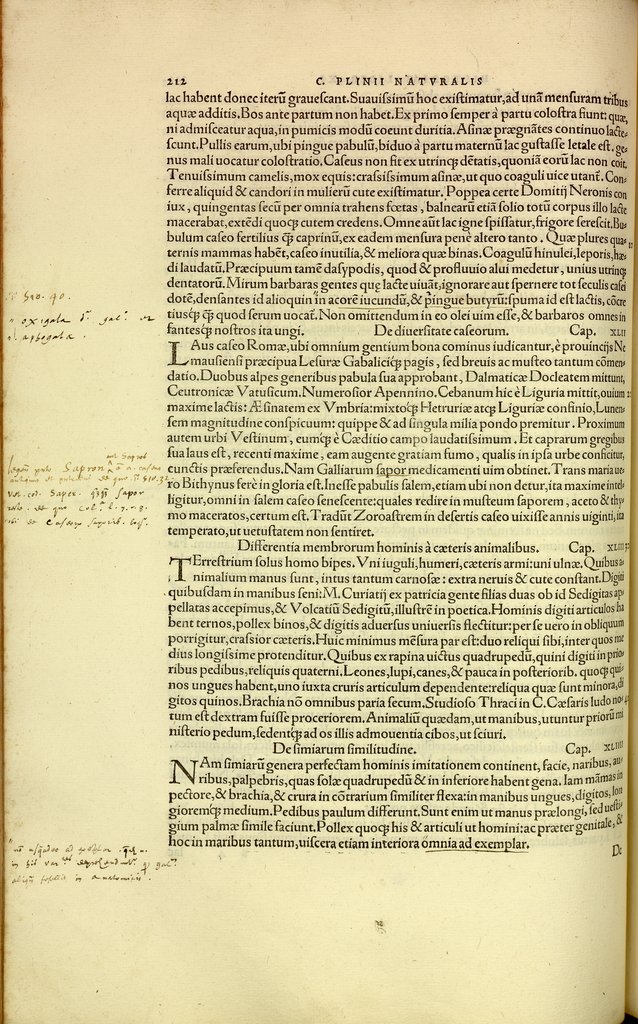 212 C. PLINII NATVRALIS
lac habent donec iterū grauescant. Suauissimū hoc existimatur, ad unā mensuram tribus
aquæ additis. Bos ante partum non habet. Ex primo semper à partu colostra fiunt: quæ,
ni admisceatur aqua, in pumicis modū coeunt duritia. Asinæ prægnātes continuo lacte-
scunt. Pullis earum, ubi pingue pabulū, biduo à partu maternū lac gustasse letale est. ge-
nus mali uocatur colostratio. Caseus non fit ex utrinq; dētatis, quoniā eorū lac non coit.
Tenuissimum camelis, mox equis: crassissimum asinæ, ut quo coaguli uice utant̄. Con-
ferre aliquid & candori in mulierū cute existimatur. Poppea certe Domitij Neronis con
iux, quingentas secū per omnia trahens fœtas, balnearū etiā solio totū corpus illo lacte
macerabat, extēdi quoq; cutem credens. Omne aūt lac igne spissatur, frigore serescit. Bu-
bulum caseo fertilius q̄ȝ caprinū, ex eadem mensura pene altero tanto. Quæ plures qua-
ternis mammas habēt, caseo inutilia, & meliora quæ binas. Coagulū hinulei, leporis, hœ-
di laudatū. Præcipuum tamē dasypodis, quod & profluuio alui medetur, unius utrinq;
dentatorū. Mirum barbaras gentes quę lacte uiuāt, ignorare aut spernere tot seculis casei
dotē, densantes id alioquin in acorē iucundū, & pingue butyrū: spuma id est lactis, cōcre
tiusq; q̄ȝ quod serum uocat̄. Non omittendum in eo olei uim esse, & barbaros omnes in
fantesq; nostros ita ungi. De diuersitate caseorum. Cap. XLII
LAus caseo Romæ, ubi omnium gentium bona cominus iudicantur, è prouincijs Ne
mausiensi præcipua Lesuræ Gabaliciq; pagis, sed breuis ac musteo tantum cōmen-
datio. Duobus alpes generibus pabula sua approbant, Dalmaticæ Docleatem mittunt,
Ceutronicæ Vatusicum. Numerosior Apennino. Cebanum hic è Liguria mittit, ouium
maxime lactis: Æsinatem ex Vmbria: mixtoq; Hetruriæ atq; Liguriæ confinio, Lunen-
sem magnitudine conspicuum: quippe & ad singula milia pondo premitur. Proximum
autem urbi Vestinum, eumq; è Cæditio campo laudatissimum. Et caprarum gregibus
sua laus est, recenti maxime, eam augente gratiam fumo, qualis in ipsa urbe conficitur,
cunctis præferendus. Nam Galliarum sapor medicamenti uim obtinet. Trans maria ue-
ro Bithynus ferè in gloria est. Inesse pabulis salem, etiam ubi non detur, ita maxime intel-
ligitur, omni in salem caseo senescente: quales redire in musteum saporem, aceto & thy-
mo maceratos, certum est. Tradūt Zoroastrem in desertis caseo uixisse annis uiginti, ita
temperato, ut uetustatem non sentiret.
Differentia membrorum hominis à cæteris animalibus. Cap. XLIII
TErrestrium solus homo bipes. Vni iuguli, humeri, cæteris armi: uni ulnæ. Quibus a-
nimalium manus sunt, intus tantum carnosæ: extra neruis & cute constant. Digiti
quibusdam in manibus seni: M. Curiatij ex patricia gente filias duas ob id Sedigitas ap-
pellatas accepimus, & Volcatiū Sedigitū, illustrē in poetica. Hominis digiti articulos ha
bent ternos, pollex binos, & digitis aduersus uniuersis flectitur: per se uero in obliquum
porrigitur, crassior cæteris. Huic minimus mēsura par est: duo reliqui sibi, inter quos me
dius longissime protenditur. Quibus ex rapina uictus quadrupedū, quini digiti in prio-
ribus pedibus, reliquis quaterni. Leones, lupi, canes, & pauca in posteriorib. quoq; qui-
nos ungues habent, uno iuxta cruris articulum dependente: reliqua quæ sunt minora, di
gitos quinos. Brachia nō omnibus paria secum. Studioso Thraci in C. Cæsaris ludo no-
tum est dextram fuisse proceriorem. Animaliū quædam, ut manibus, utuntur priorū mi
nisterio pedum, sedentq; ad os illis admouentia cibos, ut sciuri.
De simiarum similitudine. Cap. XLIIII
NAm simiarū genera perfectam hominis imitationem continent, facie, naribus, au-
ribus, palpebris, quas solæ quadrupedū & in inferiore habent gena. Iam māmas in
pectore, & brachia, & crura in cōtrarium similiter flexa: in manibus ungues, digitos, lon
gioremq; medium. Pedibus paulum differunt. Sunt enim ut manus prælongi, sed uesti-
gium palmæ simile faciunt. Pollex quoq; his & articuli ut homini: ac præter genitale, &
hoc in maribus tantum, uiscera etiam interiora omnia ad exemplar.
De
510. 40.
oxigala
Sapron